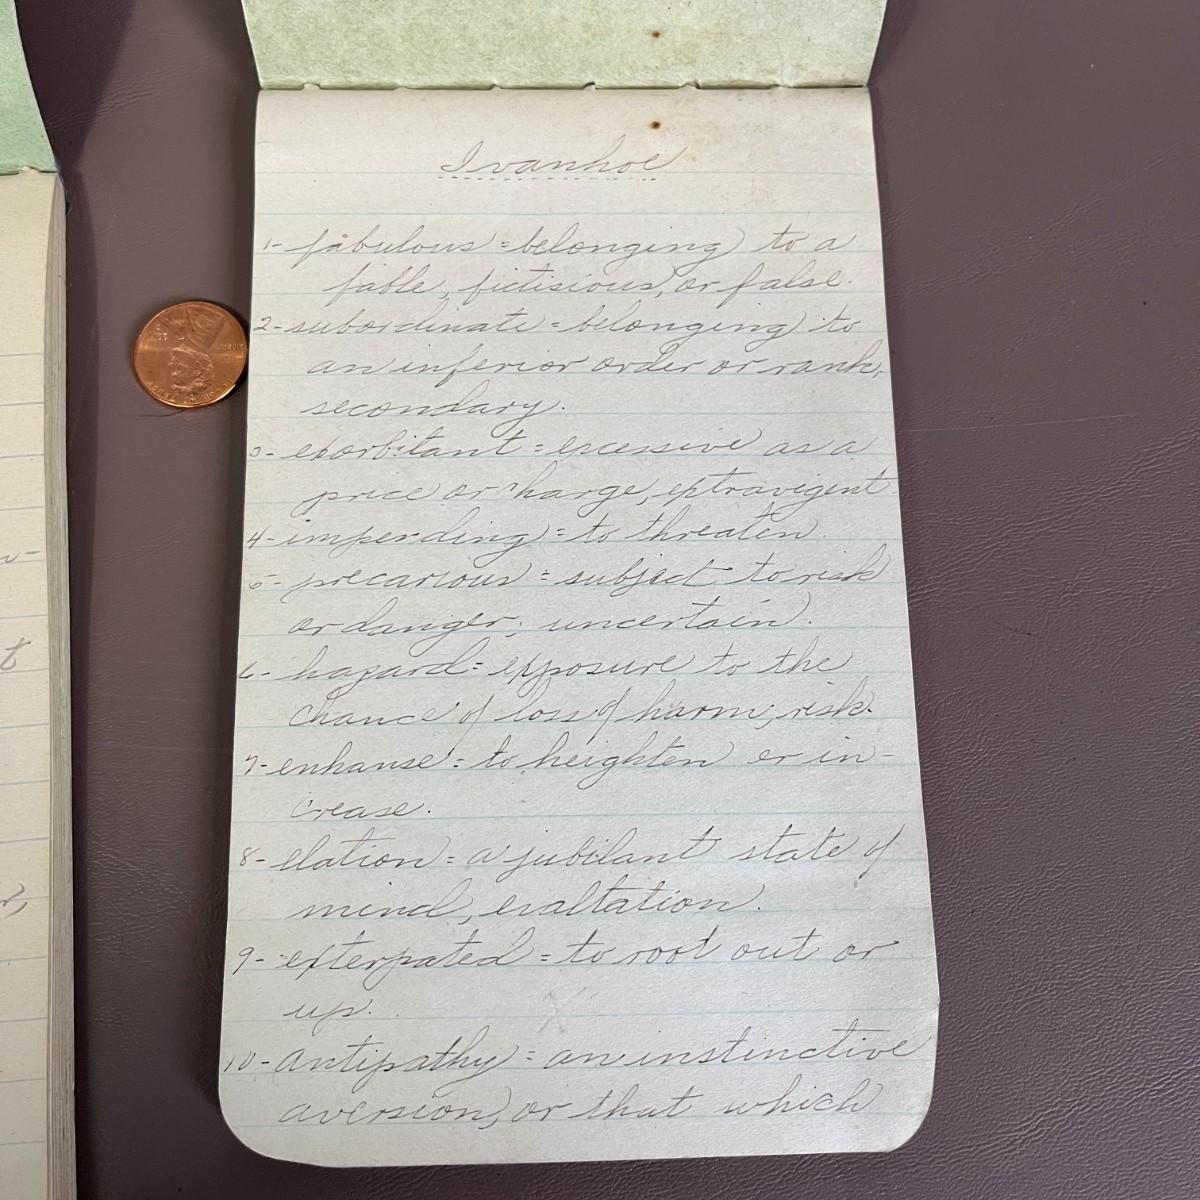 Ivanhoe
1- fabulous = belonging to a
fable, fictisious, or false.
2- subordinate = belonging to
an inferior order or rank,
secondary.
3- exorbitant = excessive as a
price or charge, extravigent
4- impending = to threaten
5- precarious = subject to risk
or danger; uncertain.
6- hazard = exposure to the
chance of loss of harm, risk.
7- enhanse = to heighten or in-
crease.
8- elation = a jubilant state of
mind, exaltation.
9- exterpated = to root out or
up.
10- antipathy = an instinctive
aversion, or that which